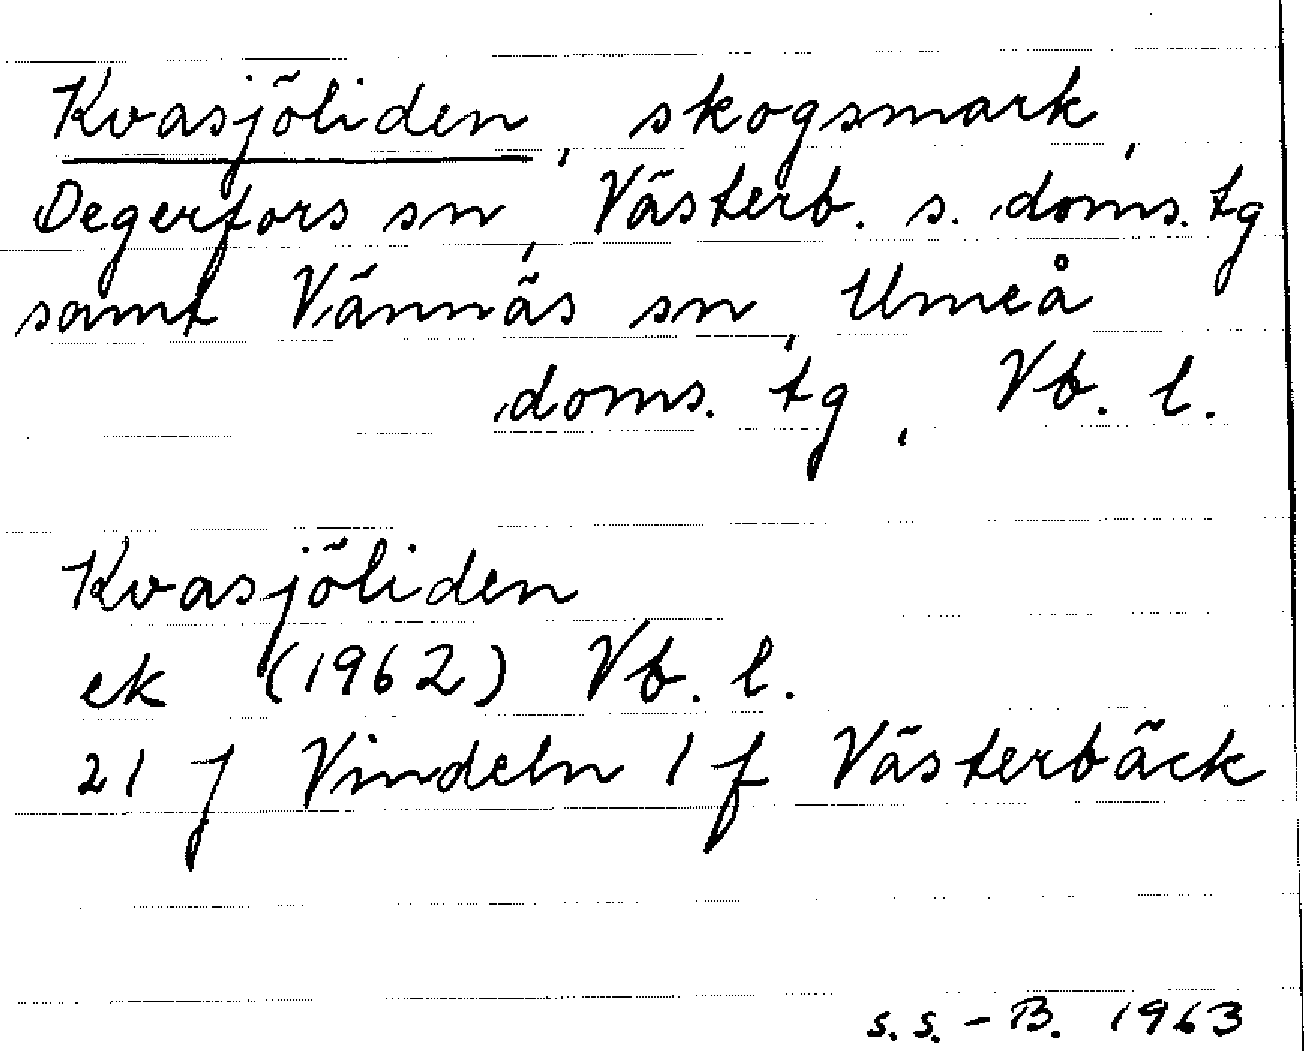 Kvasjöliden, skogsmark,
Degerfors sn, Västerb. s. doms. tg
samt Vännäs sn, Umeå
doms. tg, Vb. l.
Kvasjöliden
ek (1962) Vb. l.
21 J Vindeln 1 f Västerbäck
s.s. - B. 1963